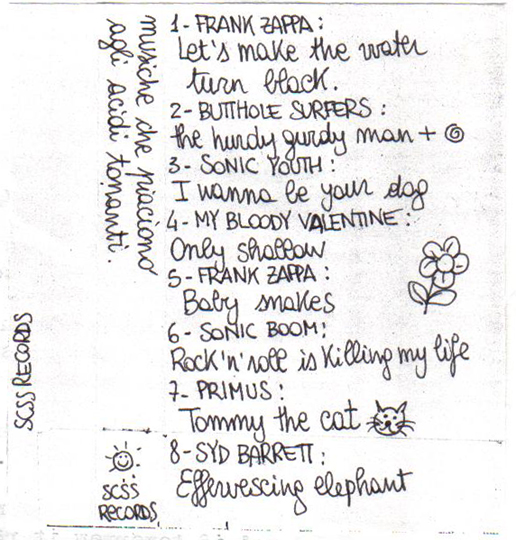 musiche che piaciono
agli acidi tonanti.
1- FRANK ZAPPA:
Let's make the water
turn black.
2- BUTTHOLE SURFERS:
the hurdy gurdy man +
3- SONIC YOUTH:
I wanna be your dog
4- MY BLOODY VALENTINE:
Only shallow
5- FRANK ZAPPA:
Baby snakes
6- SONIC BOOM:
Rock'n'roll is Killing my life
7- PRIMUS:
Tommy the cat
8- SYD BARRETT:
Effervescing elephant
SCSS RECORDS
SCSS
RECORDS